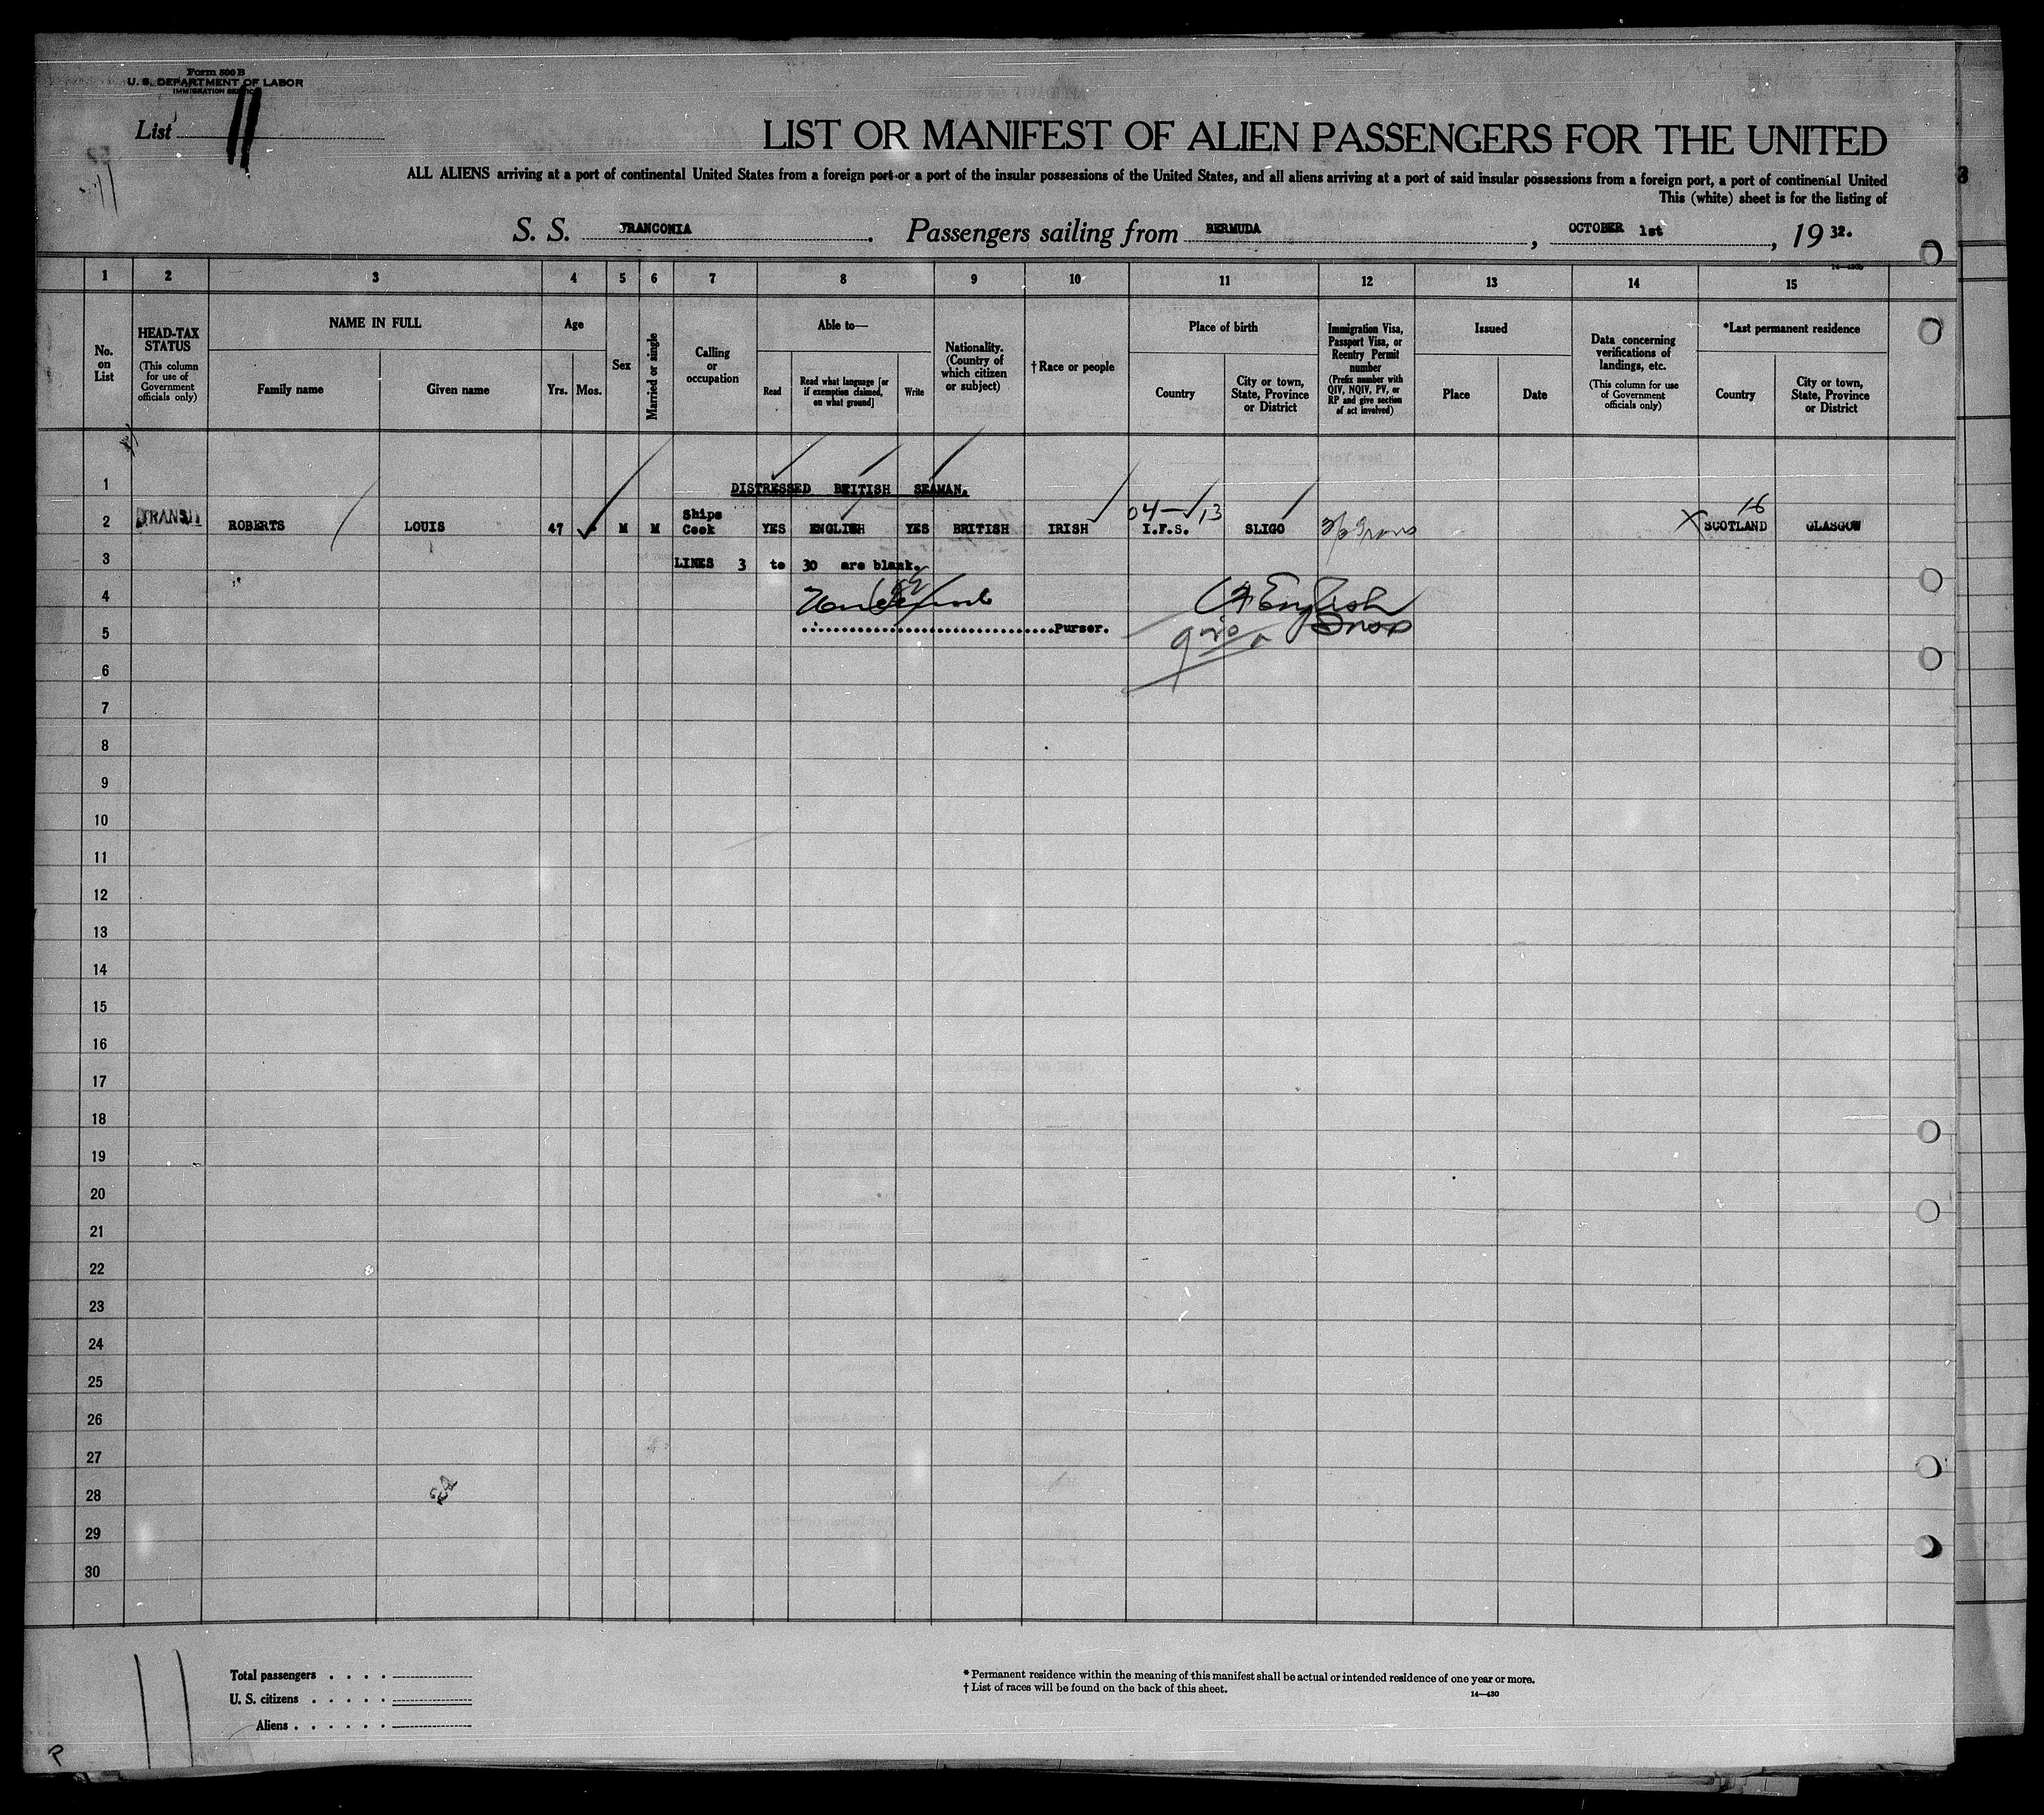 Form 500 B
U. S. DEPARTMENT OF LABOR
IMMIGRATION SERVICE
List 11
LIST OR MANIFEST OF ALIEN PASSENGERS FOR THE UNITED
ALL ALIENS arriving at a port of continental United States from a foreign port or a port of the insular possessions of the United States, and all aliens arriving at a port of said insular possessions from a foreign port, a port of continental United
This (white) sheet is for the listing of
S. S. FRANCONIA. Passengers sailing from BERMUDA, OCTOBER 1st, 19 32.
14—430b
1 2 3 4 5 6 7 8 9 10 11 12 13 14 15
No. on List
HEAD-TAX STATUS
(This column for use of Government officials only)
NAME IN FULL
Family name
Given name
Age
Yrs. Mos.
Sex
Married or single
Calling or occupation
Able to—
Read
Read what language [or if exemption claimed, on what ground]
Write
Nationality. (Country of which citizen or subject)
† Race or people
Place of birth
Country
City or town, State, Province or District
Immigration Visa, Passport Visa, or Reentry Permit number
(Prefix number with QIV, NQIV, PV, or RP and give section of act involved)
Issued
Place
Date
Data concerning verifications of landings, etc.
(This column for use of Government officials only)
*Last permanent residence
Country
City or town, State, Province or District
1 DISTRESSED BRITISH SEAMAN.
04— 13 16
2 TRANSIT ROBERTS LOUIS 47 M M Ships Cook YES ENGLISH YES BRITISH IRISH I.F.S. SLIGO X SCOTLAND GLASGOW
3 LINES 3 to 30 are blank.
4 English
5 Purser.
6
7
8
9
10
11
12
13
14
15
16
17
18
19
20
21
22
23
24
25
26
27
28
29
30
Total passengers . . . .
U. S. citizens . . . . .
Aliens . . . . . .
* Permanent residence within the meaning of this manifest shall be actual or intended residence of one year or more.
† List of races will be found on the back of this sheet.
14—430
11
P